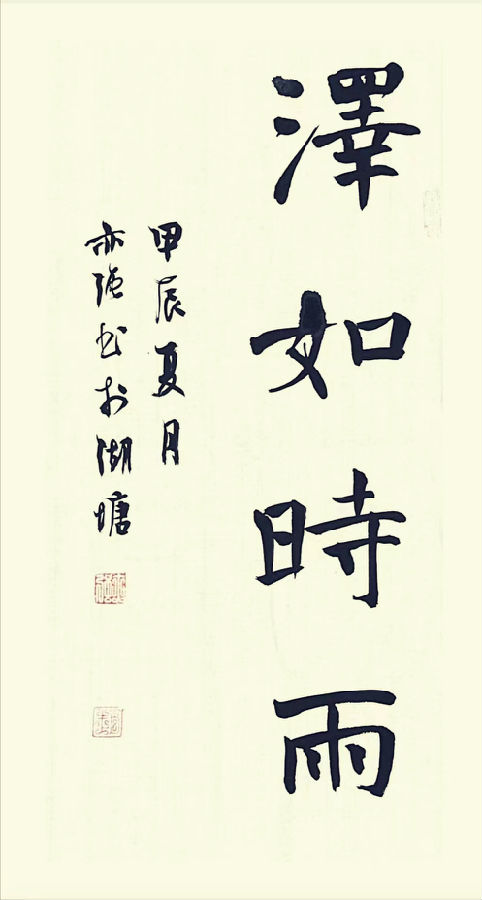 澤如時雨
甲辰夏月
亦强书於湖塘